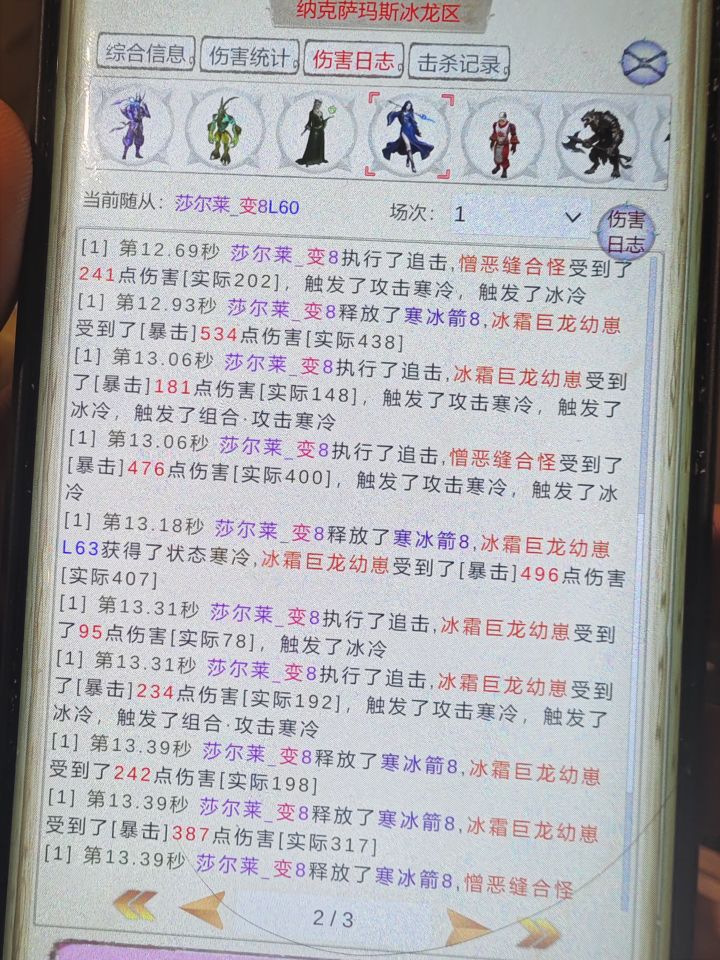 纳克萨玛斯冰龙区
综合信息 伤害统计 伤害日志 击杀记录
当前随从: 莎尔莱_变8L60 场次: 1
伤害
日志
[1] 第12.69秒 莎尔莱_变8执行了追击,憎恶缝合怪受到了
241点伤害[实际202]，触发了攻击寒冷，触发了冰冷
[1] 第12.93秒 莎尔莱_变8释放了寒冰箭8,冰霜巨龙幼崽
受到了[暴击]534点伤害[实际438]
[1] 第13.06秒 莎尔莱_变8执行了追击,冰霜巨龙幼崽受到
了[暴击]181点伤害[实际148]，触发了攻击寒冷，触发了
冰冷，触发了组合·攻击寒冷
[1] 第13.06秒 莎尔莱_变8执行了追击,憎恶缝合怪受到了
[暴击]476点伤害[实际400]，触发了攻击寒冷，触发了冰
冷
[1] 第13.18秒 莎尔莱_变8释放了寒冰箭8,冰霜巨龙幼崽
L63获得了状态寒冷,冰霜巨龙幼崽受到了[暴击]496点伤害
[实际407]
[1] 第13.31秒 莎尔莱_变8执行了追击,冰霜巨龙幼崽受到
了95点伤害[实际78]，触发了冰冷
[1] 第13.31秒 莎尔莱_变8执行了追击,冰霜巨龙幼崽受到
了[暴击]234点伤害[实际192]，触发了攻击寒冷，触发了
冰冷，触发了组合·攻击寒冷
[1] 第13.39秒 莎尔莱_变8释放了寒冰箭8,冰霜巨龙幼崽
受到了242点伤害[实际198]
[1] 第13.39秒 莎尔莱_变8释放了寒冰箭8,冰霜巨龙幼崽
受到了[暴击]387点伤害[实际317]
[1] 第13.39秒 莎尔莱_变8释放了寒冰箭8,憎恶缝合怪
2/3